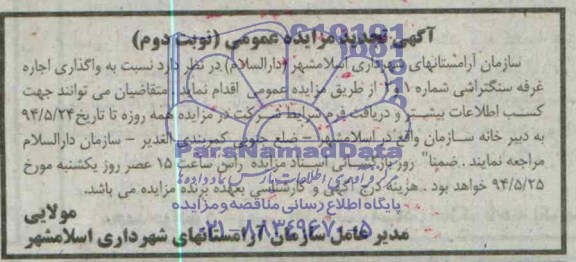 آگهی تجدید مزایده عمومی (نوبت دوم)
سازمان آرامستانهای شهرداری اسلامشهر (دارالسلام) در نظر دارد نسبت به واگذاری اجاره
غرفه سنگتراشی شماره ۱و۲ از طریق مزایده عمومی اقدام نماید. متقاضیان می توانند جهت
کسب اطلاعات بیشتر و دریافت فرم شرایط شرکت در مزایده همه روزه تا تاریخ ۹۴/۵/۲۴
به دبیر خانه سازمان واقع در اسلامشهر – ضلع جنوبی کمربندی الغدیر – سازمان دارالسلام
مراجعه نمایند . ضمنا" روز بازگشایی اسناد مزایده راس ساعت ۱۵ عصر روز یکشنبه مورخ
۹۴/۵/۲۵ خواهد بود . هزینه درج آگهی و کارشناسی بعهده برنده مزایده می باشد.
مولایی
مدیر عامل سازمان آرامستانهای شهرداری اسلامشهر
ParsNamadData
پایگاه اطلاع رسانی مناقصه و مزایده
۰۲۱-۸۸۳۴۹۶۷۰-۵